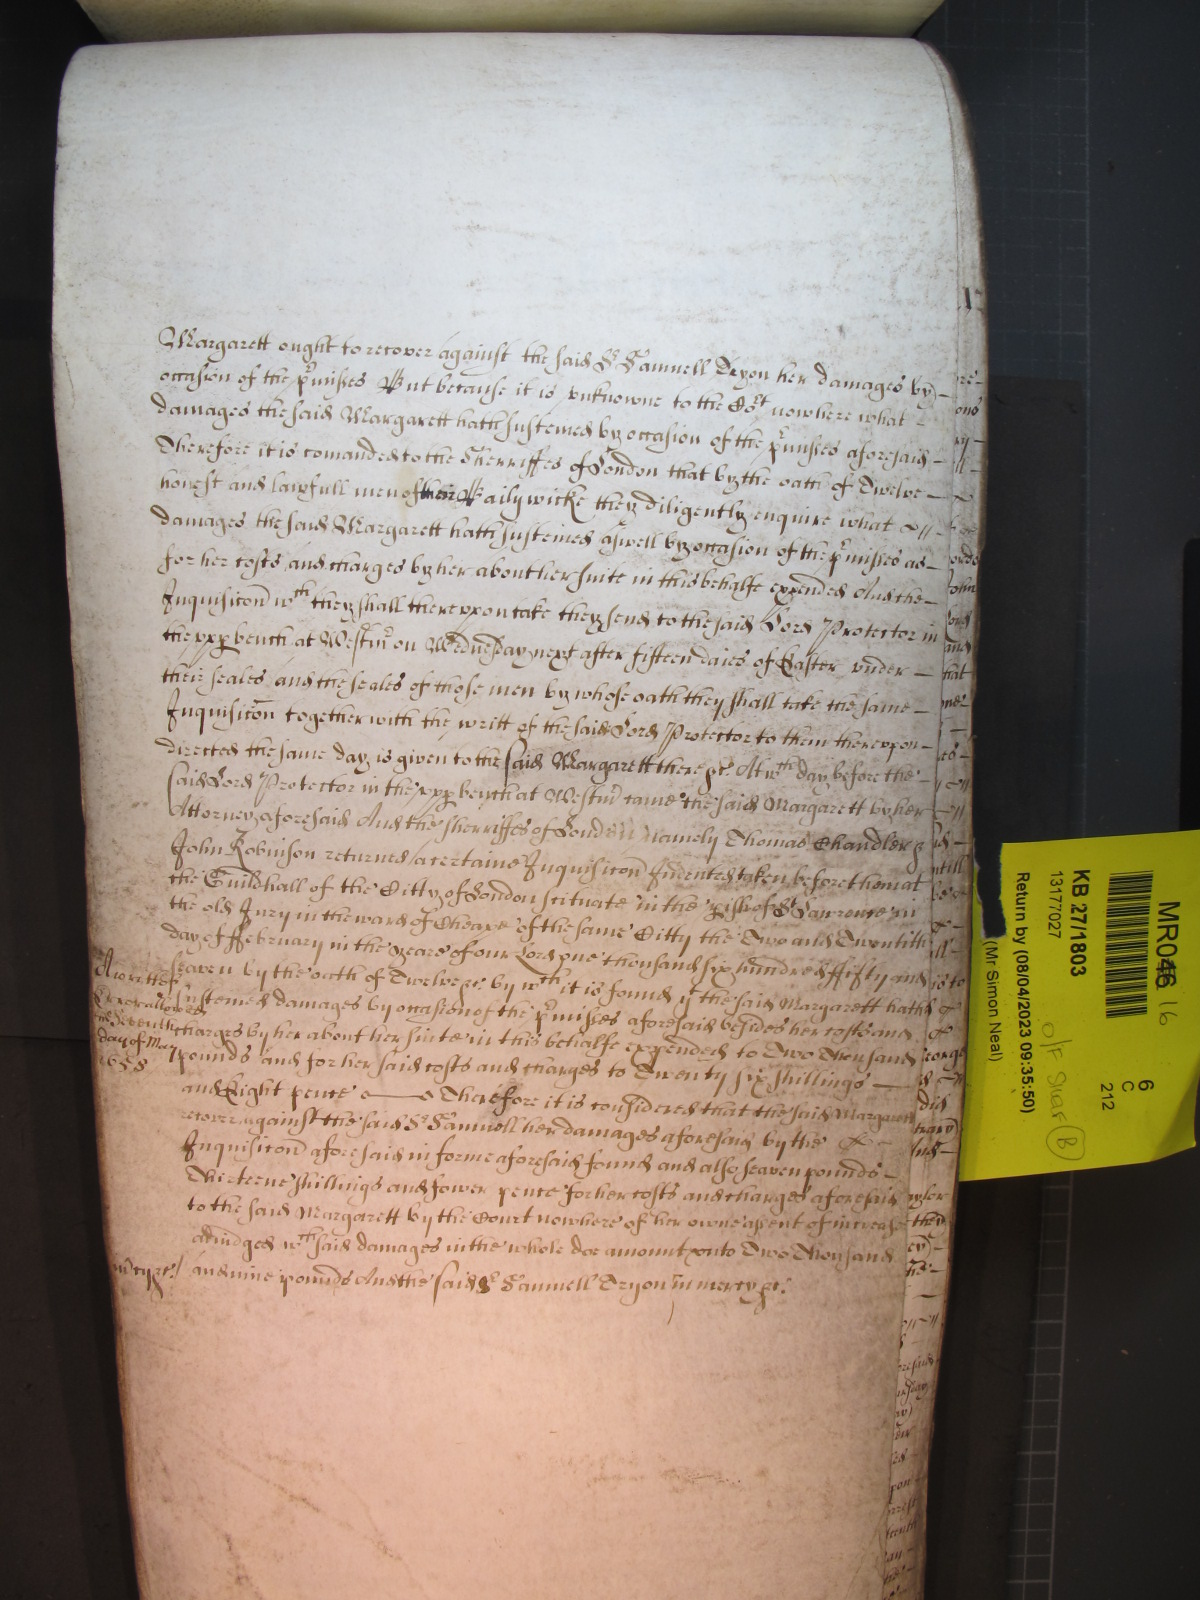 Margarett ought to recover against the said Sr Samuell Tryon her damages by
occasion of the p'misses But because it is vnknowne to the Cort nowhere what
damages the said Margarett hath susteined by occasion of the p'misses aforesaid
Therefore it is comanded to the Sherriffes of London that by the oath of Twelve
honest and lawfull men of their Bailywicke they diligently enquire what
damages the said Margarett hath susteined aswell by occasion of the p'misses as
for her costs and charges by her about her suite in this behalfe expended And the
Inquisicon wch they shall therevpon take they send to the said Lord Protector in
the vpp bench at Westmr on Wednesday next after fifteen daies of Easter vnder
their seales and the seales of those men by whose oath they shall take the same
Inquisicon together with the writt of the said Lord Protector to them therevpon
directed the same day is given to the said Margarett there &c. At wch day before the
said Lord Protector in the vpp bench at Westmr came the said Margarett by her
Attorney aforesaid And the Sherriffes of London namely Thomas Chandler &
John Robinson returned a certaine Inquisicon Indented taken before them at
the Guildhall of the Citty of London scituate in the pish of St Lawrence in
the old Jury in the ward of Cheape of the same Citty the Two and Twentith
day of ffebruary in the yeare of our Lord one thousand six hundred ffifty and
seaven by the oath of Twelve &c. by wch it is found yt the said Margarett hath
susteined damages by occasion of the p'misses aforesaid besides her costs and
charges by her about her suite in this behalfe expended to Two Thousand
pounds and for her said costs and charges to Twenty six shillings
and Eight pence Therefore it is considered that the said Margarett
recover against the said Sr Samuell her damages aforesaid by the
Inquisicon aforesaid in forme aforesaid found and also seaven pounds
Thirteene shillings and fower pence for her costs and charges aforesaid
to the said Margarett by the Court nowhere of her owne assent of increase
adiudged wch said damages in the whole doe amount vnto Two Thousand
and nine pounds And the said Sr Samuell Tryon in mercy &c.
day of May
1658
mcy &c.
MR046 16
KB 27/1803
13177027
Return by (08/04/2023 09:35:50)
(Mr Simon Neal)
6
C
212
B